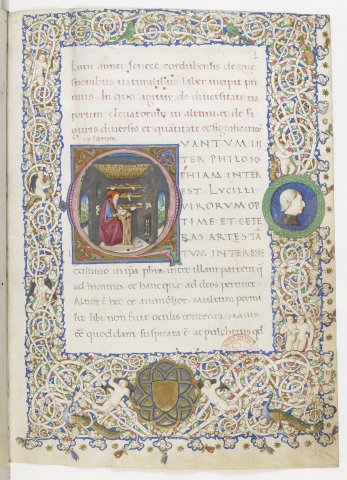 Lucii annei senece cordubensis de que
stionibus naturalibus liber incipit pri
mus In quo agitur de diversitate va
porum elevatorum in altum et de fi
guris diversis et quantitate et significatione
ipsorum
QVANTVM IN
TER PHILOSO
PHIAM INTER
EST LVCILLI
VIRORVM OP
TIME ET CETE
RAS ARTES TĀ
TVM INTERESSE
existimo in ipa phya inter illam partem q̄
ad homines et hanc que ad deos pertinet
Altior ē hec et animosior Multum permi
sit sibi non fuit oculis contenta Maius
eē quoddam suspicata ē ac pulchrius qd